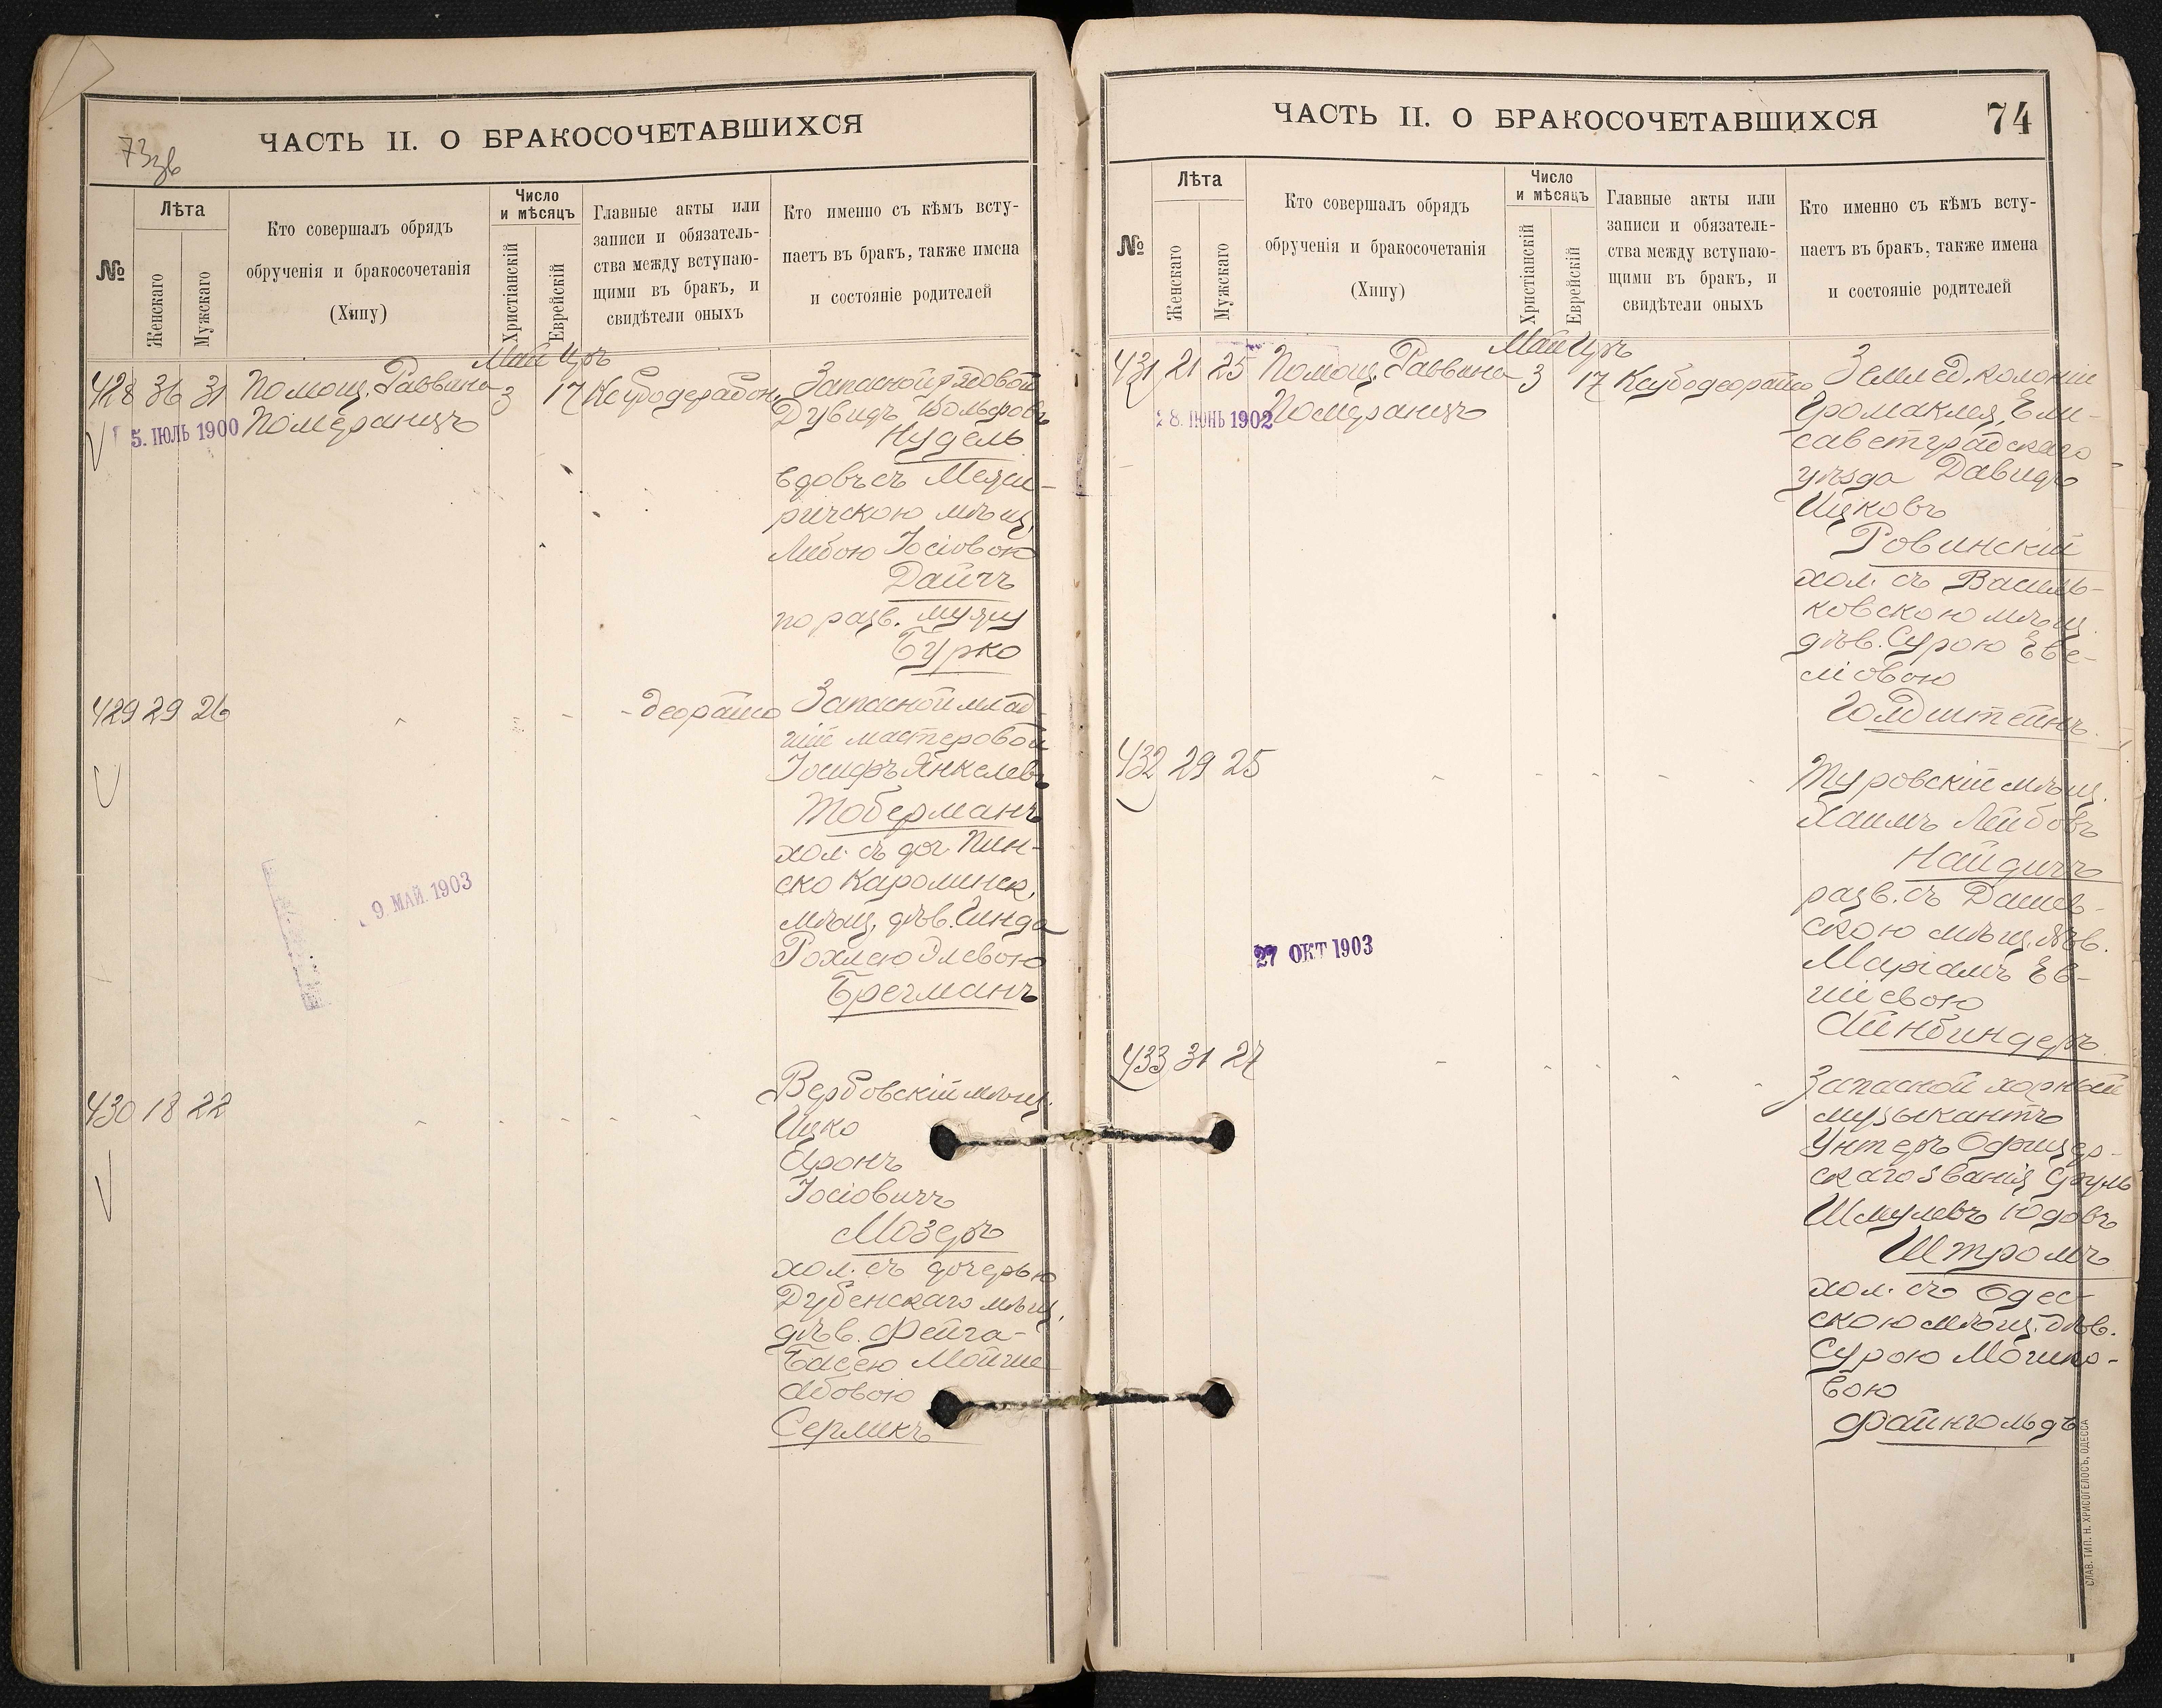 73зв
ЧАСТЬ II. О БРАКОСОЧЕТАВШИХСЯ
№
Лѣта
Женскаго
Мужскаго
Кто совершалъ обрядъ
обрученія и бракосочетанія
(Хипу)
Число
и мѣсяцъ
Христіанскій
Еврейскій
Главные акты или
записи и обязатель-
ства между вступаю-
щими въ бракъ, и
свидѣтели оныхъ
Кто именно съ кѣмъ всту-
паетъ въ бракъ, также имена
и состояніе родителей
Май Іръ
428 36 31 Помощ. Раввина 3 17
Померанцъ
5. ІЮЛЬ 1900
Запасной рядовой
Дувидъ Вольфовъ
Нудель
вдовъ съ Межи-
ричскою мѣщ.
Либою Іосіовою
Дайчъ
по разв. мужу
Бурко
429 29 26
Запасной млад-
шій мастеровой
Іосифъ Янкелевъ
Тоберманъ
хол. съ доч. Пин-
ско Каролинск.
мѣщ. дѣв. Гинда
Рохлею Элевою
Брегманъ
9. МАЙ. 1903
430 18 22
Вербовскій мѣщ.
Ицко
Аронъ
Іосіовичъ
Мозеръ
хол. съ дочерью
Дубенскаго мѣщ.
дѣв. Фейга-
Басею Мойше
Абовою
Серликъ
ЧАСТЬ II. О БРАКОСОЧЕТАВШИХСЯ
74
№
Лѣта
Женскаго
Мужскаго
Кто совершалъ обрядъ
обрученія и бракосочетанія
(Хипу)
Число
и мѣсяцъ
Христіанскій
Еврейскій
Главные акты или
записи и обязатель-
ства между вступаю-
щими въ бракъ, и
свидѣтели оныхъ
Кто именно съ кѣмъ всту-
паетъ въ бракъ, также имена
и состояніе родителей
Май Іръ
431 21 25 Помощ. Раввина 3 17
Померанцъ
28. ІЮНЬ 1902
Землед. колоніи
Громаклея, Ели-
саветградскаго
уѣзда Давидъ
Ицковъ
Ровинскій
хол. съ Василь-
ковскою мѣщ.
дѣв. Сурою Еве-
ліовою
Голдштейнъ
432 29 25
Туровскій мѣщ.
Хаимъ Лейбовъ
Найдичъ
разв. съ Дашев-
скою мѣщ. дѣв.
Маріамъ Ев-
шіевою
Айнбиндеръ
27 ОКТ 1903
433 31 27
Запасной хорный
музыкантъ
Унтеръ Офицер-
скаго званія Сруль
Шмулевъ Юдовъ
Штромъ
хол. съ Одес-
скою мѣщ. дѣв.
Сурою Мошко-
вою
Файнгольдъ
СЛАВ. ТИП. Н. ХРИСОГЕЛОСЪ, ОДЕССА